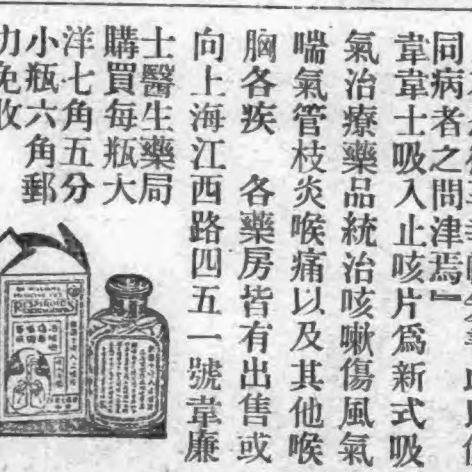 同病者之問津焉』
韋韋士吸入止咳片爲新式吸
氣治療藥品統治咳嗽傷風氣
喘氣管枝炎喉痛以及其他喉
胸各疾 各藥房皆有出售或
向上海江西路四五一號韋廉
士醫生藥局
購買每瓶大
洋七角五分
小瓶六角郵
力免收